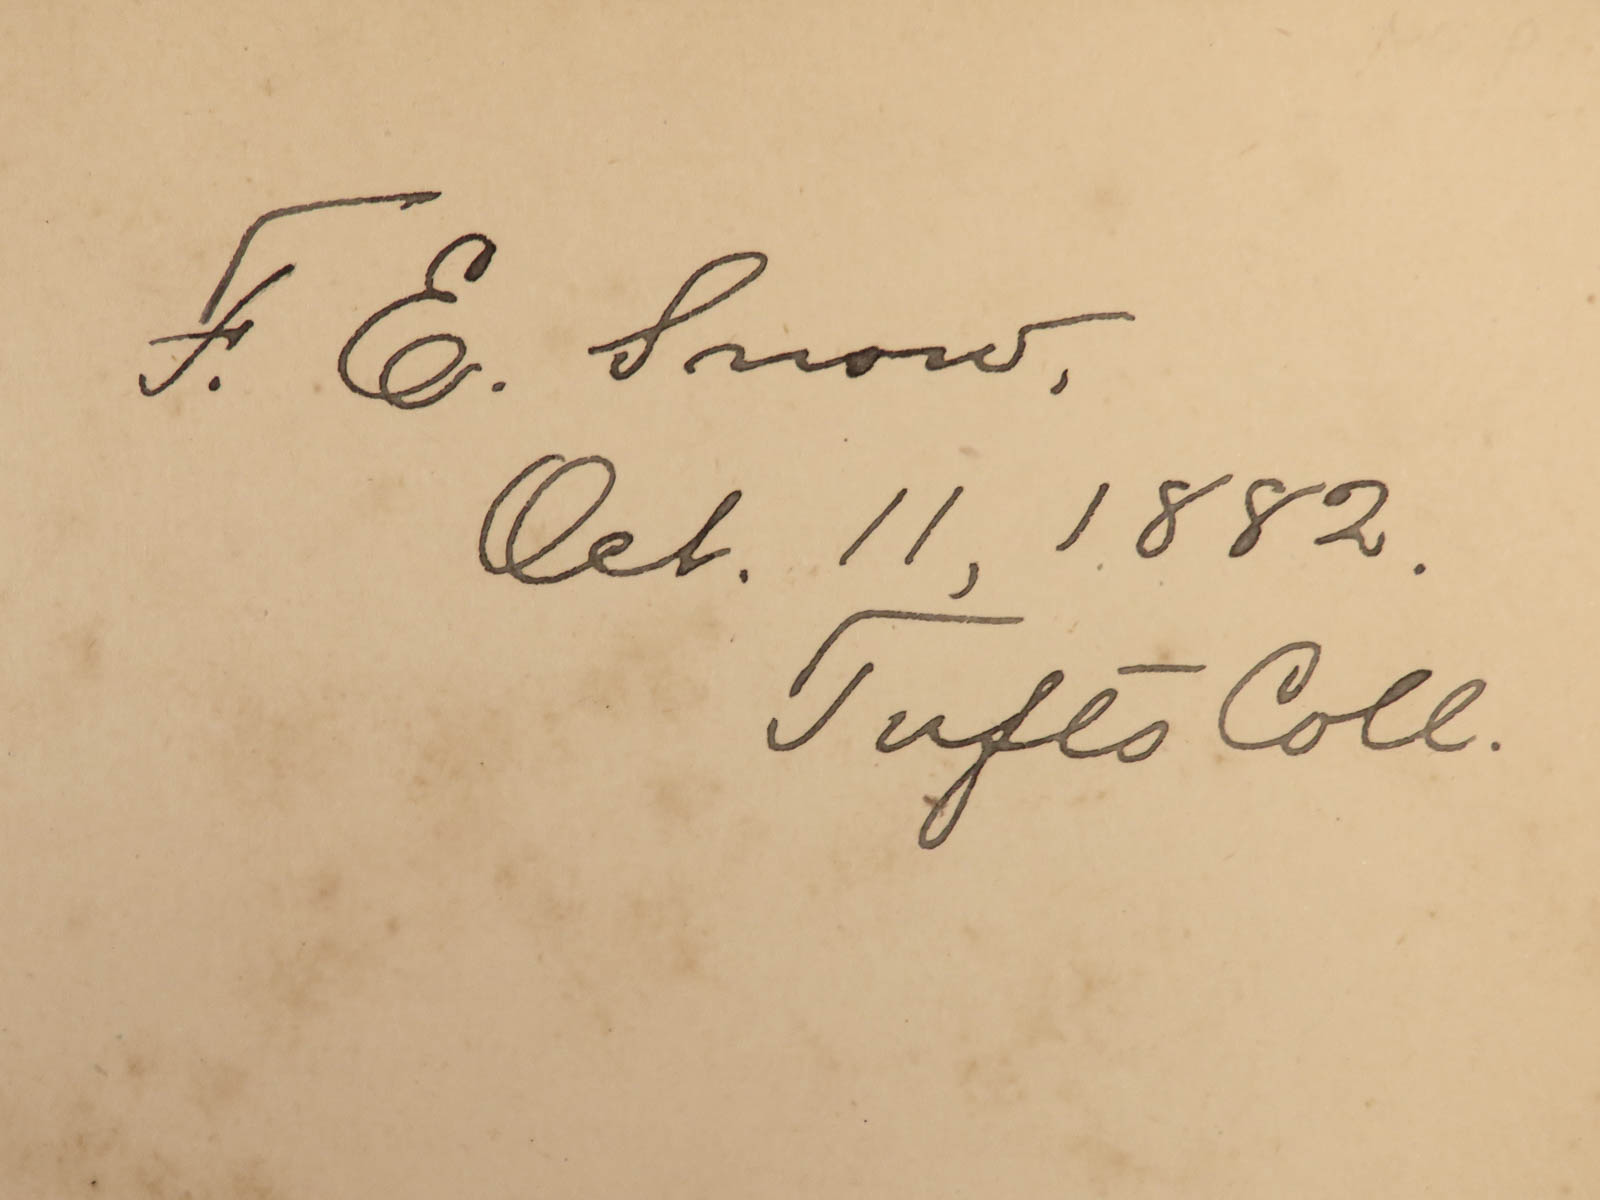 F. E. Snow,
Oct. 11, 1882.
Tufts Coll.